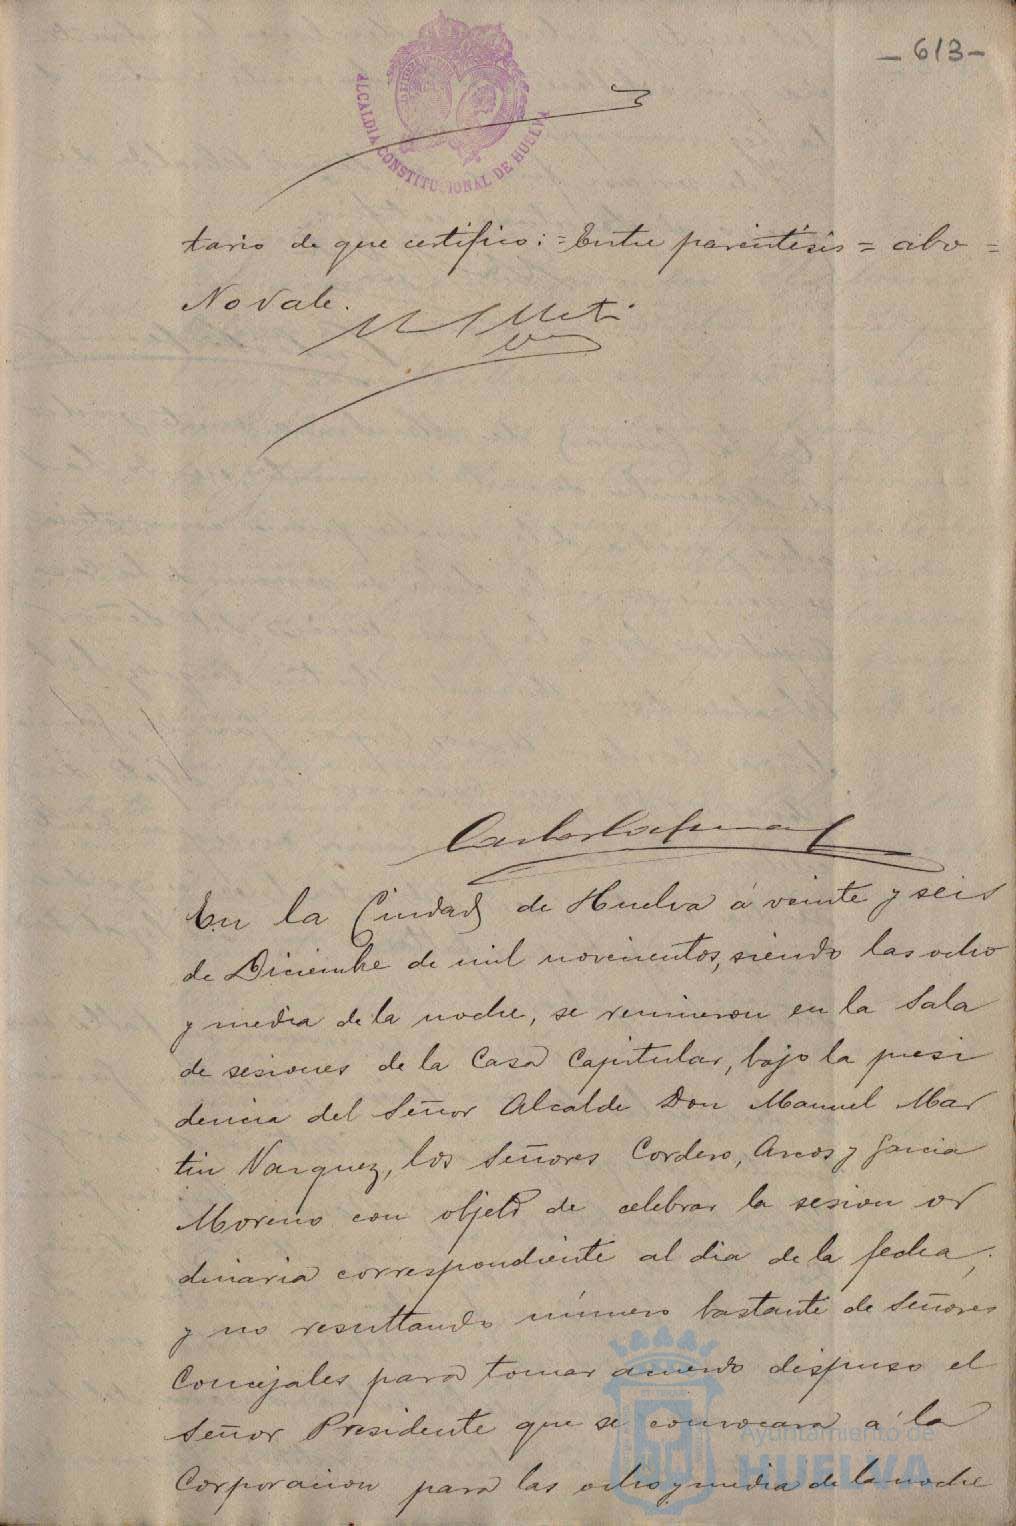 - 613 -
ALCALDIA CONSTITUCIONAL DE HUELVA
tario de que certifico: = Entre parentésis = abo =
No Vale.
En la Ciudad de Huelva á veinte y seis
de Diciembre de mil novecientos, siendo las ocho
y media de la noche, se reunieron en la Sala
de sesiones de la Casa Capitular, bajo la presi
dencia del Señor Alcalde Don Manuel Mar
tin Vazquez, los Señores Cordero, Arcos y Garcia
Moreno con objeto de celebrar la sesion or
dinaria correspondiente al dia de la fecha,
y no resultando número bastante de Señores
Concejales para tomar acuerdo dispuso el
Señor Presidente que se convocara á la
Corporacion para las ocho y media de la noche
Ayuntamiento de
HUELVA